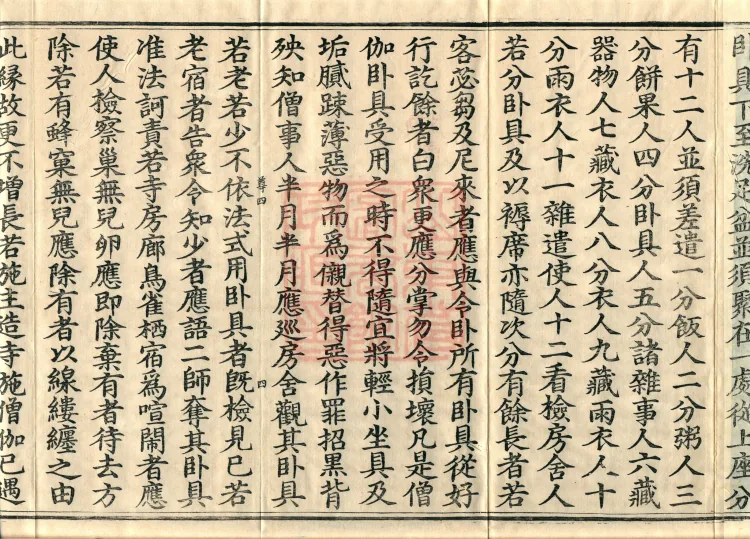 卧具下至洗足盆並須聚在一處從上座分
有十二人並須差遣一分飯人二分粥人三
分餅果人四分卧具人五分諸雜事人六藏
器物人七藏衣人八分衣人九藏雨衣人十
分雨衣人十一雜遣使人十二看檢房舍人
若分卧具及以褥席亦隨次分有餘長者若
客苾芻及尼來者應與令卧所有卧具從好
行訖餘者白衆更應分掌勿令損壞凡是僧
伽卧具受用之時不得隨宜將輕小坐具及
垢膩踈薄惡物而爲儭替得惡作罪招黒背
殃知僧事人半月半月應巡房舍觀其卧具
尊四 四
若老若少不依法式用卧具者旣檢見已若
老宿者告衆令知少者應語二師奪其卧具
准法訶責若寺房廊鳥雀栖宿爲喧鬧者應
使人撿察巢無兒卵應即除棄有者待去方
除若有蜂窠無兒應除有者以線縷纏之由
此縁故更不增長若施主造寺施僧伽已遇